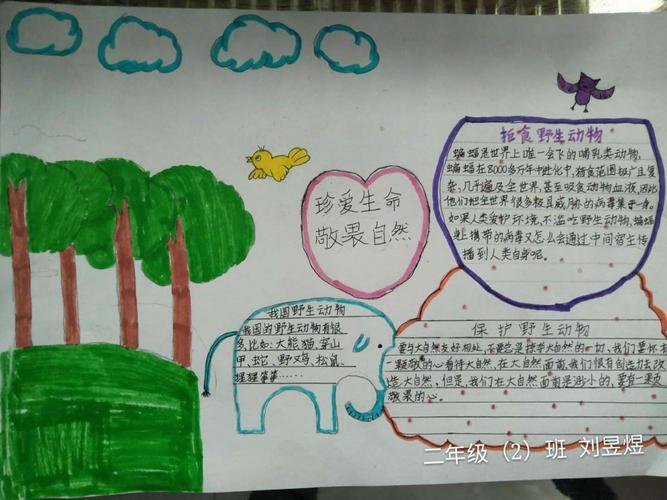 拒食野生动物
蝙蝠是世界上唯一会飞的哺乳类动物,
蝙蝠在8000多万年进化中,捕食范围极广且复
杂,几乎遍及全世界,甚至吸食动物血液,因此
他们把全世界很多极具威胁的病毒集于一身。
如果人类爱护环境,不滥吃野生动物,蝙蝠
身上携带的病毒又怎么会通过中间宿主传
播到人类自身呢。
珍爱生命
敬畏自然
我国野生动物
我国的野生动物有很
多,比如:大熊猫、穿山
甲、蛇、野鸡、松鼠、
猩猩等等……
保护野生动物
要与大自然友好相处,不要总是掠夺大自然的一切,我们要怀有一
颗敬的心看待大自然,在大自然面前,我们很有创造力去改
造大自然,但是,我们在大自然面前是渺小的,要有一颗
敬畏的心。
二年级(2)班 刘昱煜